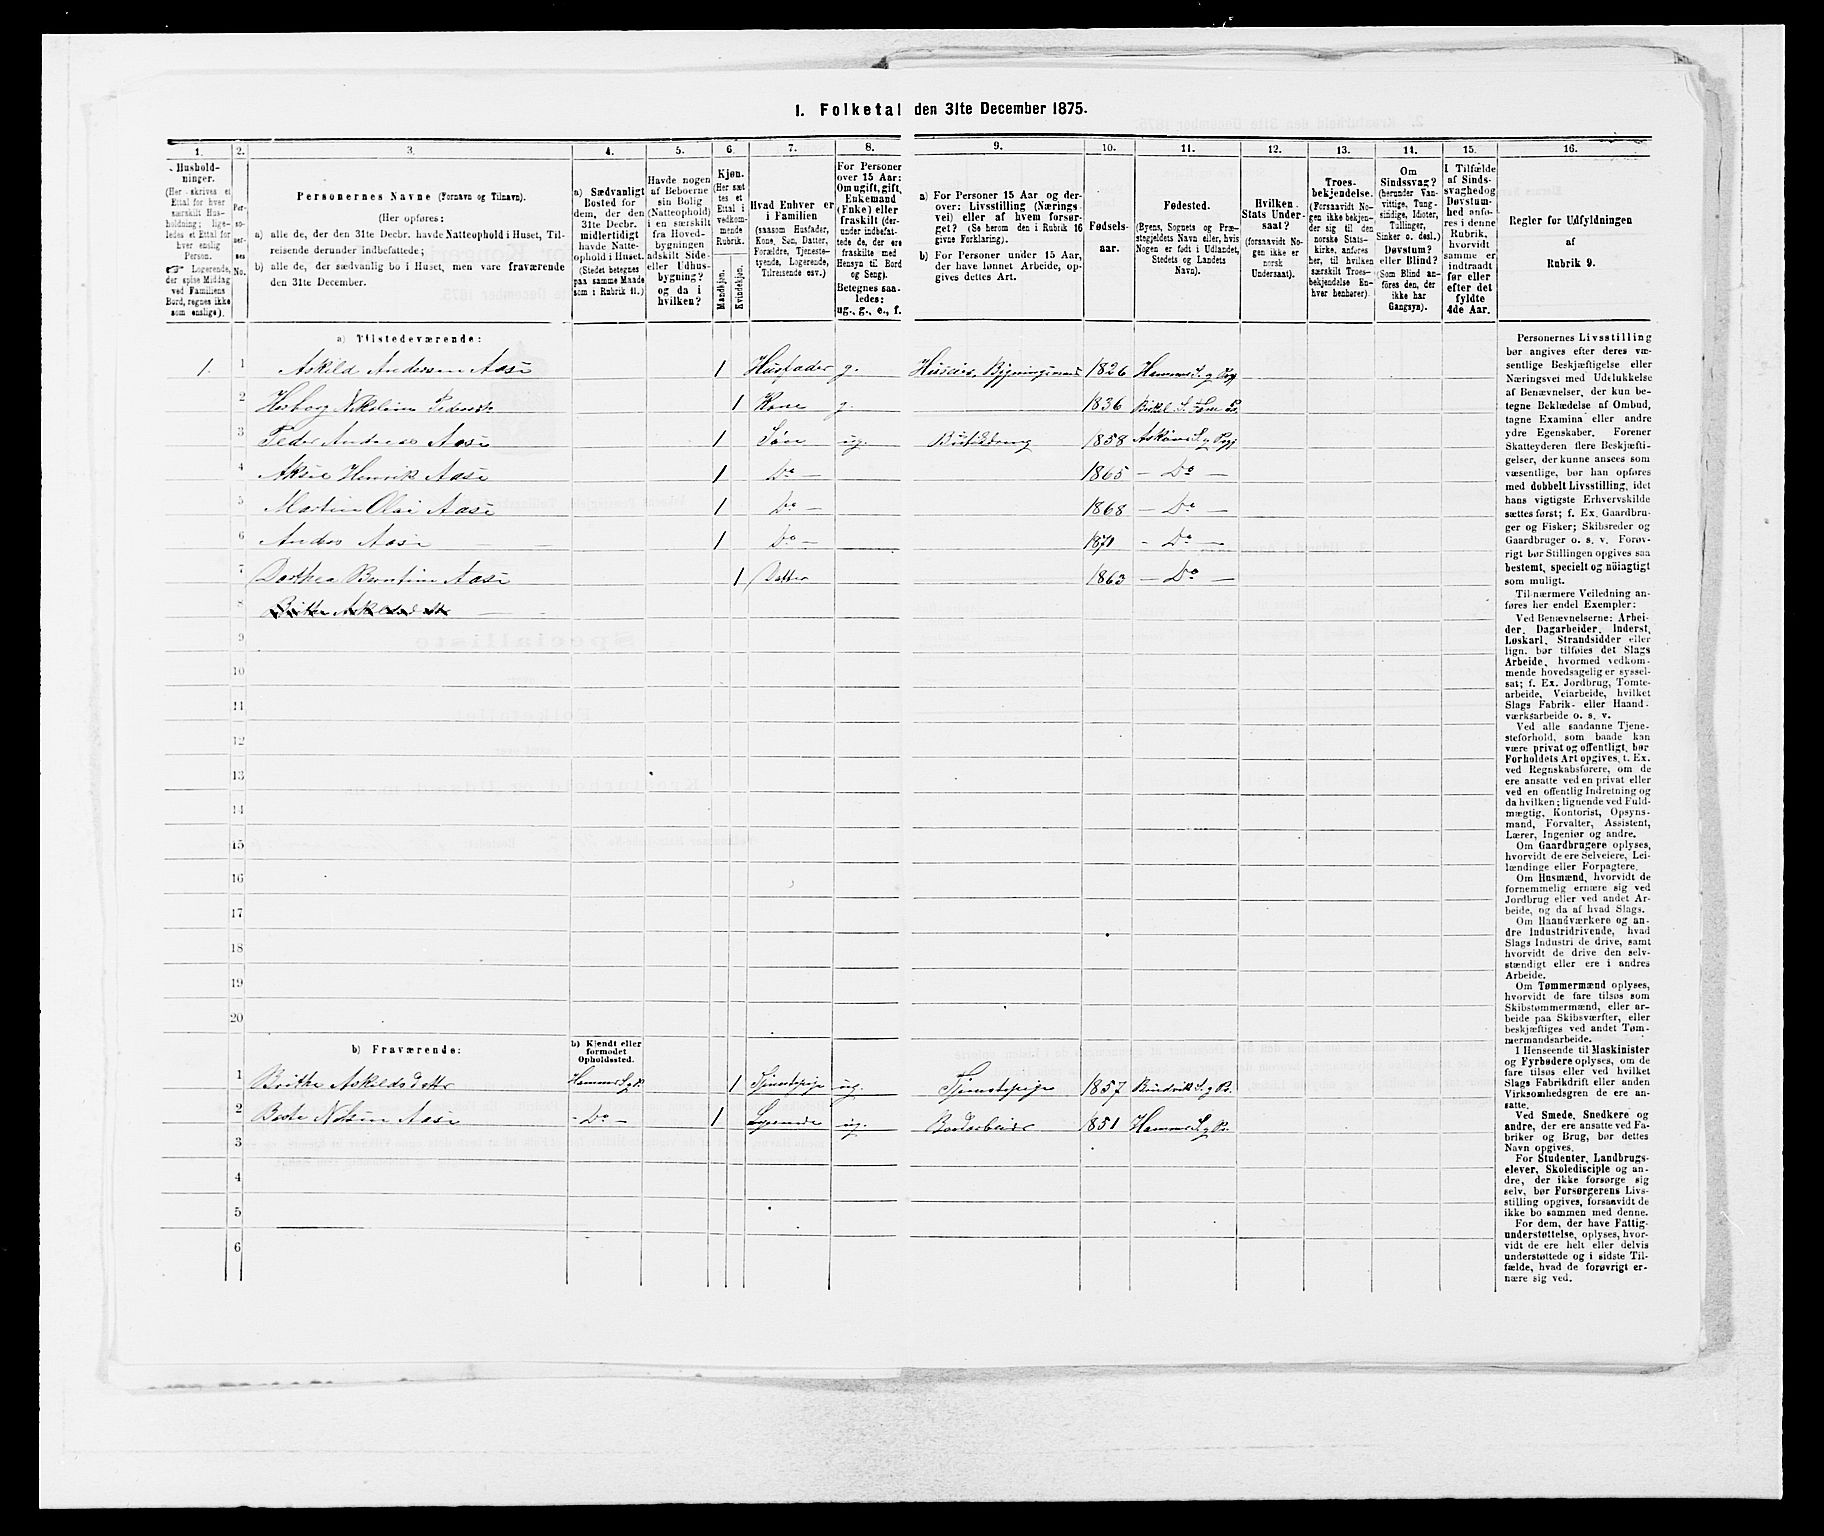 1. Folketal den 31te December 1875.
1.
Hushold-
ninger.
(Her skrives et
Ettal for hver
særskilt Hus-
holdning; lige-
ledes et Ettal for
hver enslig
Person.
Logerende,
der spise Middag
ved Familiens
Bord, regnes ikke
som enslige).
2.
Per-
so-
ner-
nes
No.
3.
Personernes Navne (Fornavn og Tilnavn).
(Her opføres:
a) alle de, der den 31te Decbr. havde Natteophold i Huset, Til-
reisende derunder indbefattede;
b) alle de, der sædvanlig bo i Huset, men vare fraværende
den 31te December.
4.
a) Sædvanligt
Bosted for
dem, der den
31te Decbr.
midlertidigt
havde Natte-
ophold i Huset.
(Stedet betegnes
paa samme Maade
som i Rubrik 11.)
5.
Havde nogen
af Beboerne
sin Bolig
(Natteophold)
i en særskilt
fra Hoved-
bygningen
adskilt Side-
eller Udhus-
bygning?
og da i
hvilken?
6.
Kjøn.
(Her sæt-
tes et
Ettal i
vedkom-
mende
Rubrik.
Mandkjøn.
Kvindekjøn.
7.
Hvad Enhver er
i Familien
(saasom Husfader,
Kone, Søn, Datter,
Forældre, Tjeneste-
tyende, Logerende,
Tilreisende osv.)
8.
For Personer
over 15 Aar:
Om ugift, gift,
Enkemand
(Enke) eller
fraskilt (der-
under indbefat-
tede de, der ere
fraskilte med
Hensyn til Bord
og Seng).
Betegnes saa-
ledes:
ug., g., e., f.
9.
a) For Personer 15 Aar og der-
over: Livsstilling (Nærings-
vei) eller af hvem forsør-
get? (Se herom den i Rubrik 16
givne Forklaring).
b) For Personer under 15 Aar,
der have lønnet Arbeide, op-
gives dettes Art.
10.
Fødsels-
aar.
11.
Fødested.
(Byens, Sognets og Præ-
stegjeldets Navn eller, hvis
Nogen er født i Udlandet,
Stedets og Landets
Navn).
12.
Hvilken
Stats Under-
saat?
(forsaavidt No-
gen ikke er
norsk
Undersaat).
13.
Troes-
bekjendelse.
(Forsaavidt No-
gen ikke bekjen-
der sig til den
norske Stats-
kirke, anføres
her, til hvilken
særskilt Troes-
bekjendelse En-
hver henhører).
14.
Om
Sindssvag?
(herunder Van-
vittige, Tung-
sindige, Idioter,
Tullinger,
Sinker o. desl.)
Døvstum?
eller Blind?
(Som Blind an-
føres den, der
ikke har
Gangsyn).
15.
I Tilfælde
af Sinds-
svaghed og
Døvstum-
hed anfø-
res i denne
Rubrik,
hvorvidt
samme er
indtraadt
før eller
efter det
fyldte
4de Aar.
16.
Regler for Udfyldningen
af
Rubrik 9.
a) Tilstedeværende:
1. 1 Askild Andersen Aase 1 Husfader g. 1826 Hammer S. og Pgj
2 Nikoline Pedersdtr 1 Kone g. 1836
3 Peder Andreas Aase 1 Søn ug. 1858 Askøens S. og Pgj
4 Aksel Henrik Aase 1 Do — 1865 — Do —
5 Martin Olai Aase 1 Do — 1868 — Do —
6 Anders Aase 1 Do — 1871 - Do —
7 Dorthea Berntine Aase 1 Datter 1863 — Do —
8 Brithe Askildsdattr
9
10
11
12
13
14
15
16
17
18
19
20
b) Fraværende:
b) Kjendt eller
formodet
Opholdssted.
1 Brithe Askildsdattr Hammer S. og P. 1 Tjenestepige ug. Tjenestepige 1857
2 Nilsen Aase - Do — 1 Logerende ug. Bordarbeider 1851 Hammer S. og Pr.
3
4
5
6
Personernes Livsstilling
bør angives efter deres væ-
sentlige Beskjæftigelse eller
Næringsvei med Udelukkelse
af Benævnelser, der kun be-
tegne Beklædelse af Ombud,
tagne Examina eller andre
ydre Egenskaber. Forener
Skatteyderen flere Beskjæfti-
gelser, der kunne ansees som
væsentlige, bør han opføres
med dobbelt Livsstilling, idet
hans vigtigste Erhvervskilde
sættes først; f. Ex. Gaardbru-
ger og Fisker; Skibsreder og
Gaardbruger o. s. v. Forøv-
rigt bør Stillingen opgives saa
bestemt, specielt og nøiagtigt
som muligt.
Til nærmere Veiledning an-
føres her endel Exempler:
Ved Benævnelserne: Arbei-
der, Dagarbeider, Inderst,
Løskarl, Strandsidder eller
lign. bør tilføies det Slags
Arbeide, hvormed vedkom-
mende hovedsagelig er syssel-
sat; f. Ex. Jordbrug, Tomte-
arbeide, Veiarbeide, hvilket
Slags Fabrik- eller Haand-
værksarbeide o. s. v.
Ved alle saadanne Tjene-
steforhold, som baade kan
være privat og offentligt, bør
Forholdets Art opgives, t. Ex.
ved Regnskabsførere, om de
ere ansatte ved en privat eller
ved en offentlig Indretning og
da hvilken; lignende ved Fuld-
mægtig, Kontorist, Opsyns-
mand, Forvalter, Assistent,
Lærer, Ingeniør og andre.
Om Gaardbrugere oplyses,
hvorvidt de ere Selveiere, Lei-
lændinge eller Forpagtere.
Om Husmænd, hvorvidt de
fornemmelig ernære sig ved
Jordbrug eller ved andet Ar-
beide, og da af hvad Slags.
Om Haandværkere og an-
dre Industridrivende, hvad
Slags Industri de drive, samt
hvorvidt de drive den selv-
stændigt eller ere i andres
Arbeide.
Om Tømmermænd oplyses,
hvorvidt de fare tilsøs som
Skibstømmermænd, eller ar-
beide paa Skibsværfter, eller
beskjæftiges ved andet Tøm-
mermandsarbeide.
I Henseende til Maskinister
og Fyrbødere oplyses, om de
fare tilsøs eller ved hvilket
Slags Fabrikdrift eller anden
Virksomhedsgren de ere an-
satte.
Ved Smede, Snedkere og
andre, der ere ansatte ved Fa-
briker og Brug, bør dettes
Navn opgives.
For Studenter, Landbrugs-
elever, Skoledisciple og an-
dre, der ikke forsørge sig
selv, bør Forsørgerens Livs-
stilling opgives, forsaavidt de
ikke bo sammen med denne.
For dem, der have Fattig-
understøttelse, oplyses, hvor-
vidt de ere helt eller delvis
understøttede og i sidste Til-
fælde, hvad de forøvrigt er-
nære sig ved.